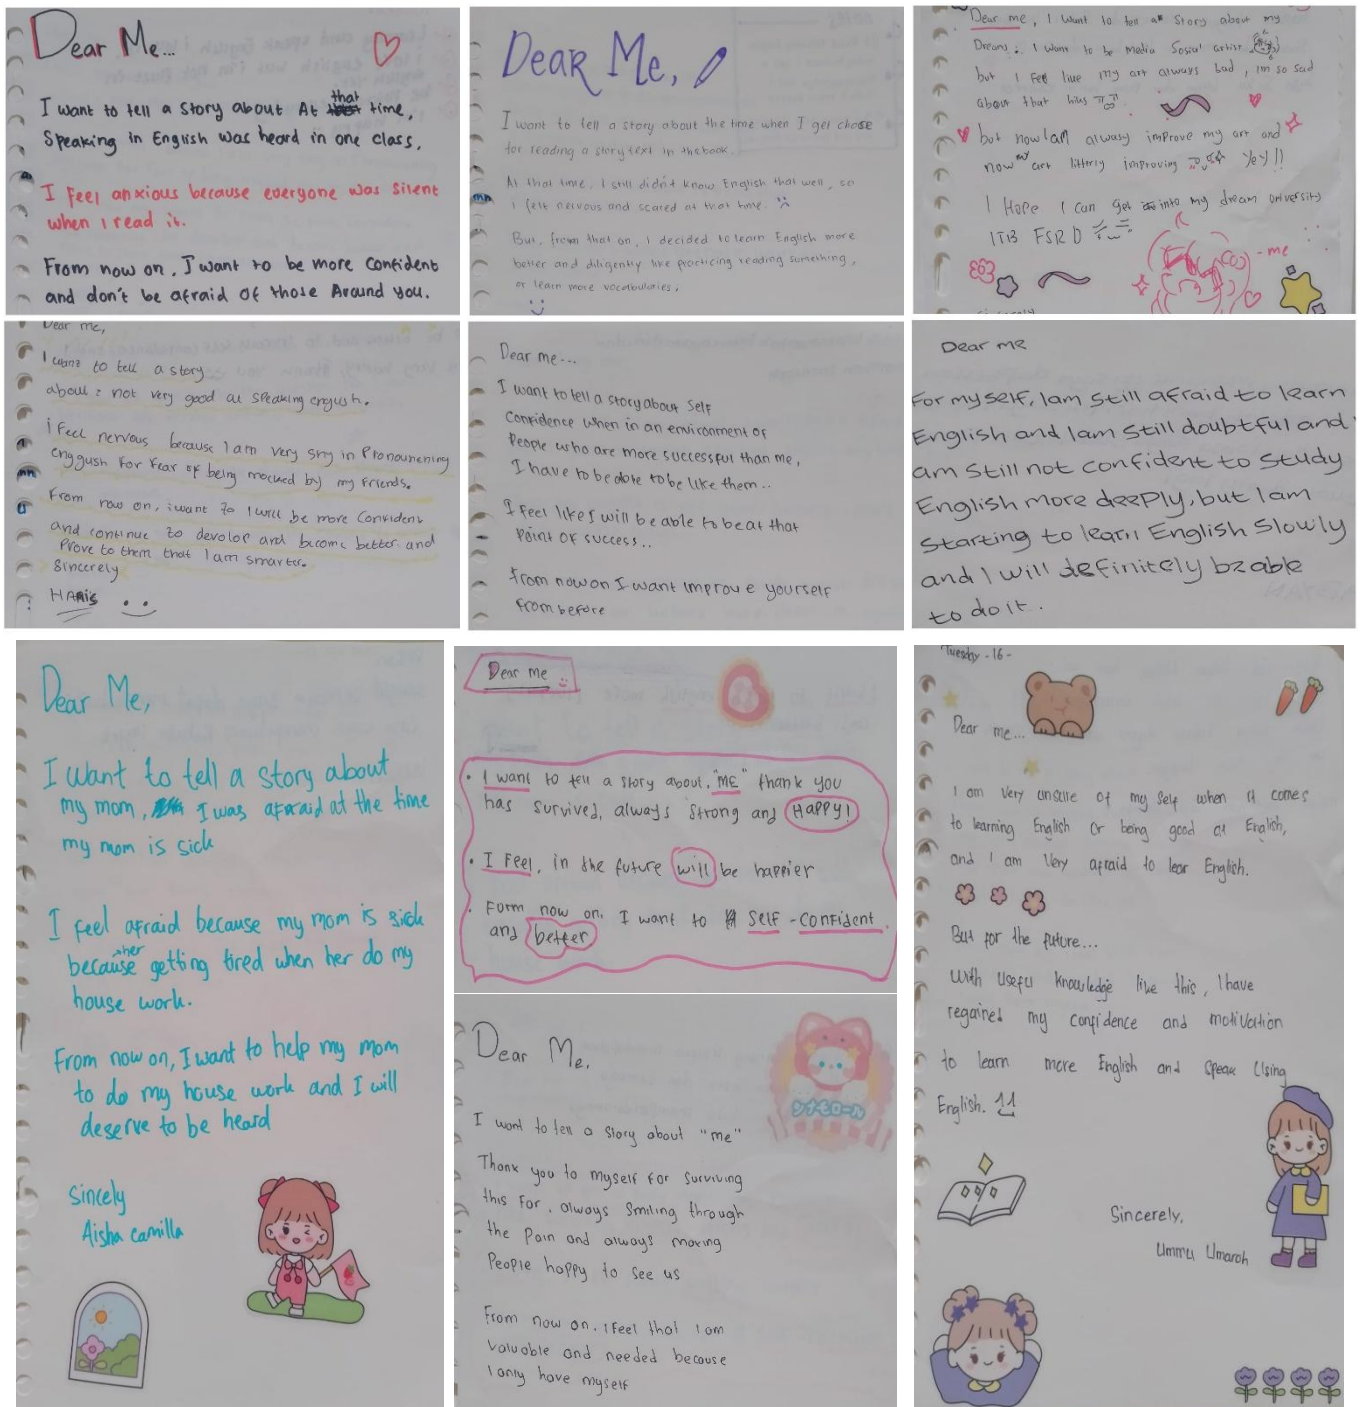 Dear Me...
I want to tell a story about At that time,
Speaking in English was heard in one class.
I feel anxious because everyone was silent
when I read it.
From now on, I want to be more confident
and don't be afraid of those Around you.
Dear Me,
I want to tell a story about the time when I get chose
for reading a story text in the book.
At that time, I still didn't know English that well, so
I felt nervous and scared at that time.
But, from that on, I decided to learn English more
better and diligently like practicing reading something,
or learn more vocabularies.
Dear me, I want to tell a story about my
Dream: I want to be media Sosial artist
but I feel like my art always bad, im so sad
about that hiks
but now I am alwasy improve my art and
now my art litterly improving Yey!!
I Hope I can get into my dream university
ITB FSRD
- me
Dear me,
I want to tell a story
about: not very good at speaking engush.
i feel nervous because I am very shy in Pronounening
enggush For Fear of being mocked by my friends.
From now on, i want to I will be more Confident
and continue to devolop and become better and
Prove to them that I am smarter.
Sincerely
HARIS
Dear me...
I want to tell a story about Self
Confidence when in an environment of
People who are more successful than me,
I have to be dote to be like them..
I feel like I will be able to beat that
Point of success..
From now on I want improve yourself
From before
Dear me
For my self, I am still afraid to learn
English and I am still doubtful and
am still not confident to study
English more deeply, but I am
starting to learn English slowly
and I will definitely be able
to do it.
Dear Me,
I want to tell a story about
my mom, I was afraid at the time
my mom is sick
I feel afraid because my mom is sick
because her getting tired when her do my
house work.
From now on, I want to help my mom
to do my house work and I will
deserve to be heard
Sincely
Aisha camilla
Dear me
• I want to tell a story about. "ME" thank you
has survived, always strong and Happy!
• I Feel, in the future will be happier
• Form now on, I want to Self - Confident.
and better
Dear Me,
シナモロール
I want to tell a story about "me"
Thank you to myself for surviving
this For. always Smiling through
the Pain and always making
People happy to see us
From now on. I feel that I am
valuable and needed because
I only have myself
Tuesday - 16 -
Dear me...
I am very unsure of my self when it comes
to learning English or being good at English,
and I am very afraid to lear English.
But for the future...
with useful knowledge like this, I have
regained my confidence and motivation
to learn more English and speak Using
English.
Sincerely,
Ummu Umaroh